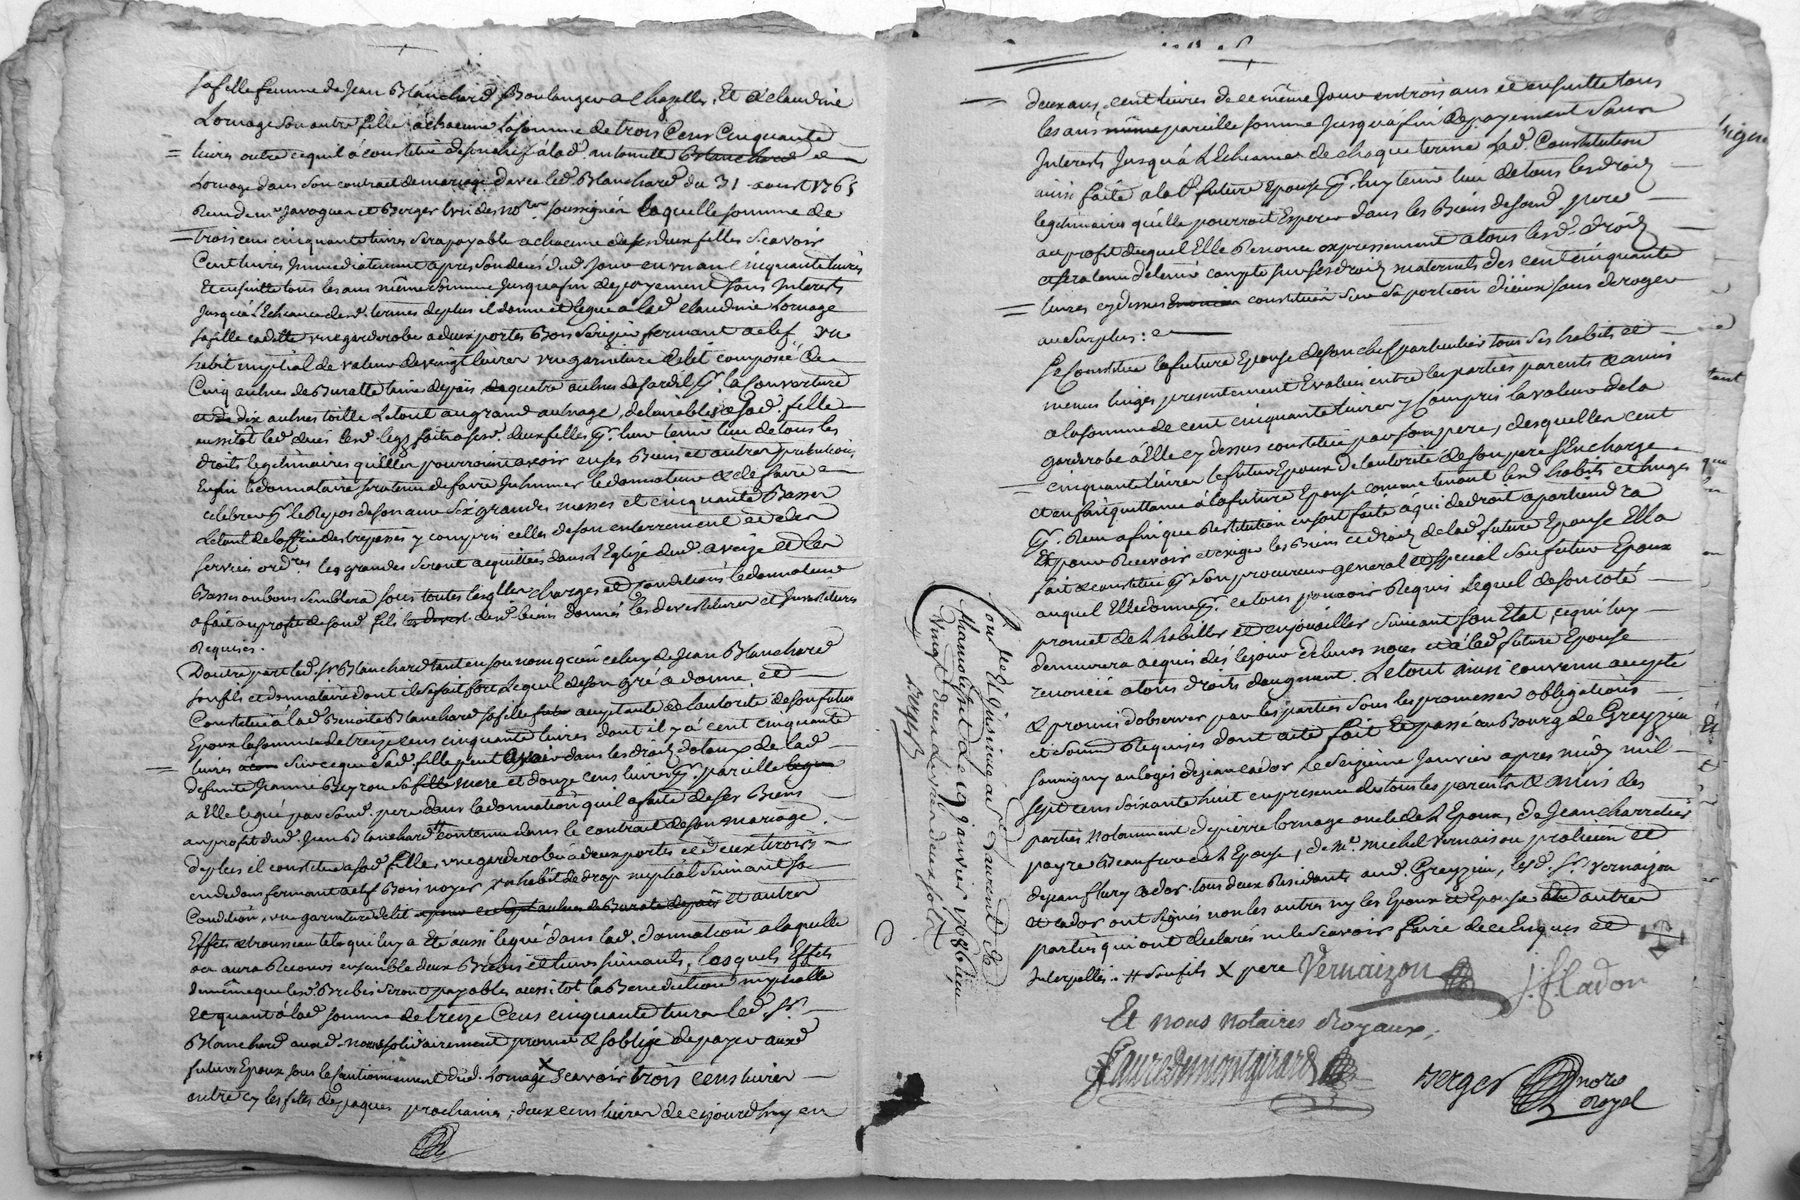 sa fille femme de Jean Blanchard Boulanger a Chazelles, Et a claudine
Lornage son autre fille a chacune la somme de trois Cens Cinquante
livres outre ce quil a constitué de son chef á lad. antoinette Blanchard et
Lornage dans son contrat de mariage d'avec led. Blanchard du 31 aoust 1765
Reçu de me Javogues et Berger lun des nores soussignés laquelle somme de
trois cens cinquante livres sera payable a chacune de ses deux filles Scavoir
Cent livres Immediatement apres son decés dud. Jour en un an Cinquante livres
Et ensuitte tous les ans meme somme Jusqua fin de payement sans Interests
Jusquá L'Echeance desd. termes de plus il donne et legue a lad. Claudine Lornage
sa fille cadette une garderobe a deux portes Bois Serizier fermant a clef, un
habit nuptial de valeur de vingt livres une garniture de lit composée de
Cinq aulnes de Buratte laine de païs de quatre aulnes de la couverture
et de dix aulnes toille Le tout au grand aulnage, delivrables a sad. fille
aussitot led. decés lesd. legs faits a sesd. deux filles pr. leur tenir lieu de tous les
droits legitimaires quelles pourroient avoir en ses Biens et autres pretentions
Enfin le donnataire sera tenu de faire Inhumer le donnateur et de faire
celebrer pr. le Repos de son ame Six grandes messes et cinquante Basses
Le tout de loffice des trepassés y compris celles de son enterrement et des
services ordres les grandes seront acquittées dans L'Eglise dud. aveize et les
Basses ou bon semblera sous toutes lesqlles charges et conditions le donnateur
a fait au profit de sond. fils desd. biens donnés les devestitures et Investitures
Requises.
Dautre part led. sr Blanchard tant en son nom quen celuy de Jean Blanchard
son fils et donnataire dont il se fait fort Lequel de son gré a donné et
Constitué à lad. Benoite Blanchard sa fille acceptante de lautorité de son futur
Epoux la somme de treize cens cinquante livres dont il y a cent cinquante
livres sur ce que sad. fille peut avoir dans les droits dotaux de lad.
defunte Jeanne Peyron sa mere et douze cens livres pr. pareille
a Elle legué par sond. pere dans la donnation quil a faite de ses Biens
au profit dud. Jean Blanchard contenue dans le contrat de son mariage.
de plus il constitue a sad. fille, une garderobe a deux portes et deux tiroirs
en dedans fermant a clef Bois noyer un habit de drap nuptial suivant sa
Condition, une garniture de lit et autres
Effets et trousseau tels qui luy a Eté aussi legué dans lad. donnation a laquelle
on aura Recours ensemble deux Brebis et leurs suivants, Lesquels Effets
de même que lesd. Brebis seront payables aussitot la Benediction nuptialle
Et quant á lad. somme de treize Cens cinquante livres led. sr.
Blanchard aud. nom solidairement promet et soblige de payer auxd.
futurs Epoux sous le cautionnement dud. Lornage X Scavoir trois cens livres
entre cy les fetes de paques prochaines, deux cens livres de cejourdhuy en
deux ans, cent livres de ce même Jour en trois ans et ensuitte tous
les ans pareille somme Jusqua fin de payement sans
Interests Jusquá L'Echeance de chaque terme Lad. Constitution
ainsi faite a lad. future Epouse pr. luy tenir lieu de tous les droits
legitimaires quelle pourrait Esperer dans les Biens de sond. pere
au profit duquel Elle Renonce expressement a tous lesd. droits
et sera tenu de tenir compte sur ses droits maternels des cent cinquante
livres cy dessus constitués sur sa portion dïceux sans deroger
au surplus : et
Se constitue la future Epouse de son chef particulier tous ses habits et
menus linges presentement Evalués entre les parties parents et amis
a la somme de cent cinquante livres y compris la valeur de la
garderobe á Elle cy dessus constituée par son pere, desquelles cent
cinquante livres le futur Epoux de lautorité de son pere se charge
et en fait quittance á la future Epouse comme tenant lesd. habits et linges
pr. Reçu afin que Restitution en soit faite á qui de droit apartiendra
Et pour Recevoir et exiger les Biens et droits de lad. future Epouse Ella
fait et constitue pr. son procureur general et special son futur Epoux
auquel Elle donne pr. ce tous pouvoirs Requis Lequel de son coté
promet de L'habiller et enjoailler suivant son Etat, ce qui luy
demeurera acquis dés le jour de leurs noces et a lad. future Epouse
renoncé a tous droits daugment. Le tout ainsi convenu accepté
et promis dobserver par les parties sous les promesses obligations
et soumd Requises dont acte fait et passé au Bourg de Greyzieu
Souvigny au logis de jean cador Le Seizieme Janvier apres midy mil
sept cens soixante huit en presence des tous les parents et amis des
parties notamment de pierre Lornage oncle de L'Epoux, de Jean charretier
payre Beaufrere de L'Epouse, de me. michel vernaison praticien et
de jean flury cador tous deux Residants aud. Greyzieu, lesd. srs. vernaizon
et cador ont signés non les autres ny les Epoux et Epouse autres
parties qui ont declarés ne le Scavoir faire de ce Enquis et
Interpellés. # son fils X pere Vernaizon J. f. Cador
Et nous notaires Royaux,
fauredemontgirard Berger nore
Royal
Controllé et Insinué a St Laurent de
Chamousset le 19 Janvier 1768 Reçu
Vingt deux livres deux sols
Berger